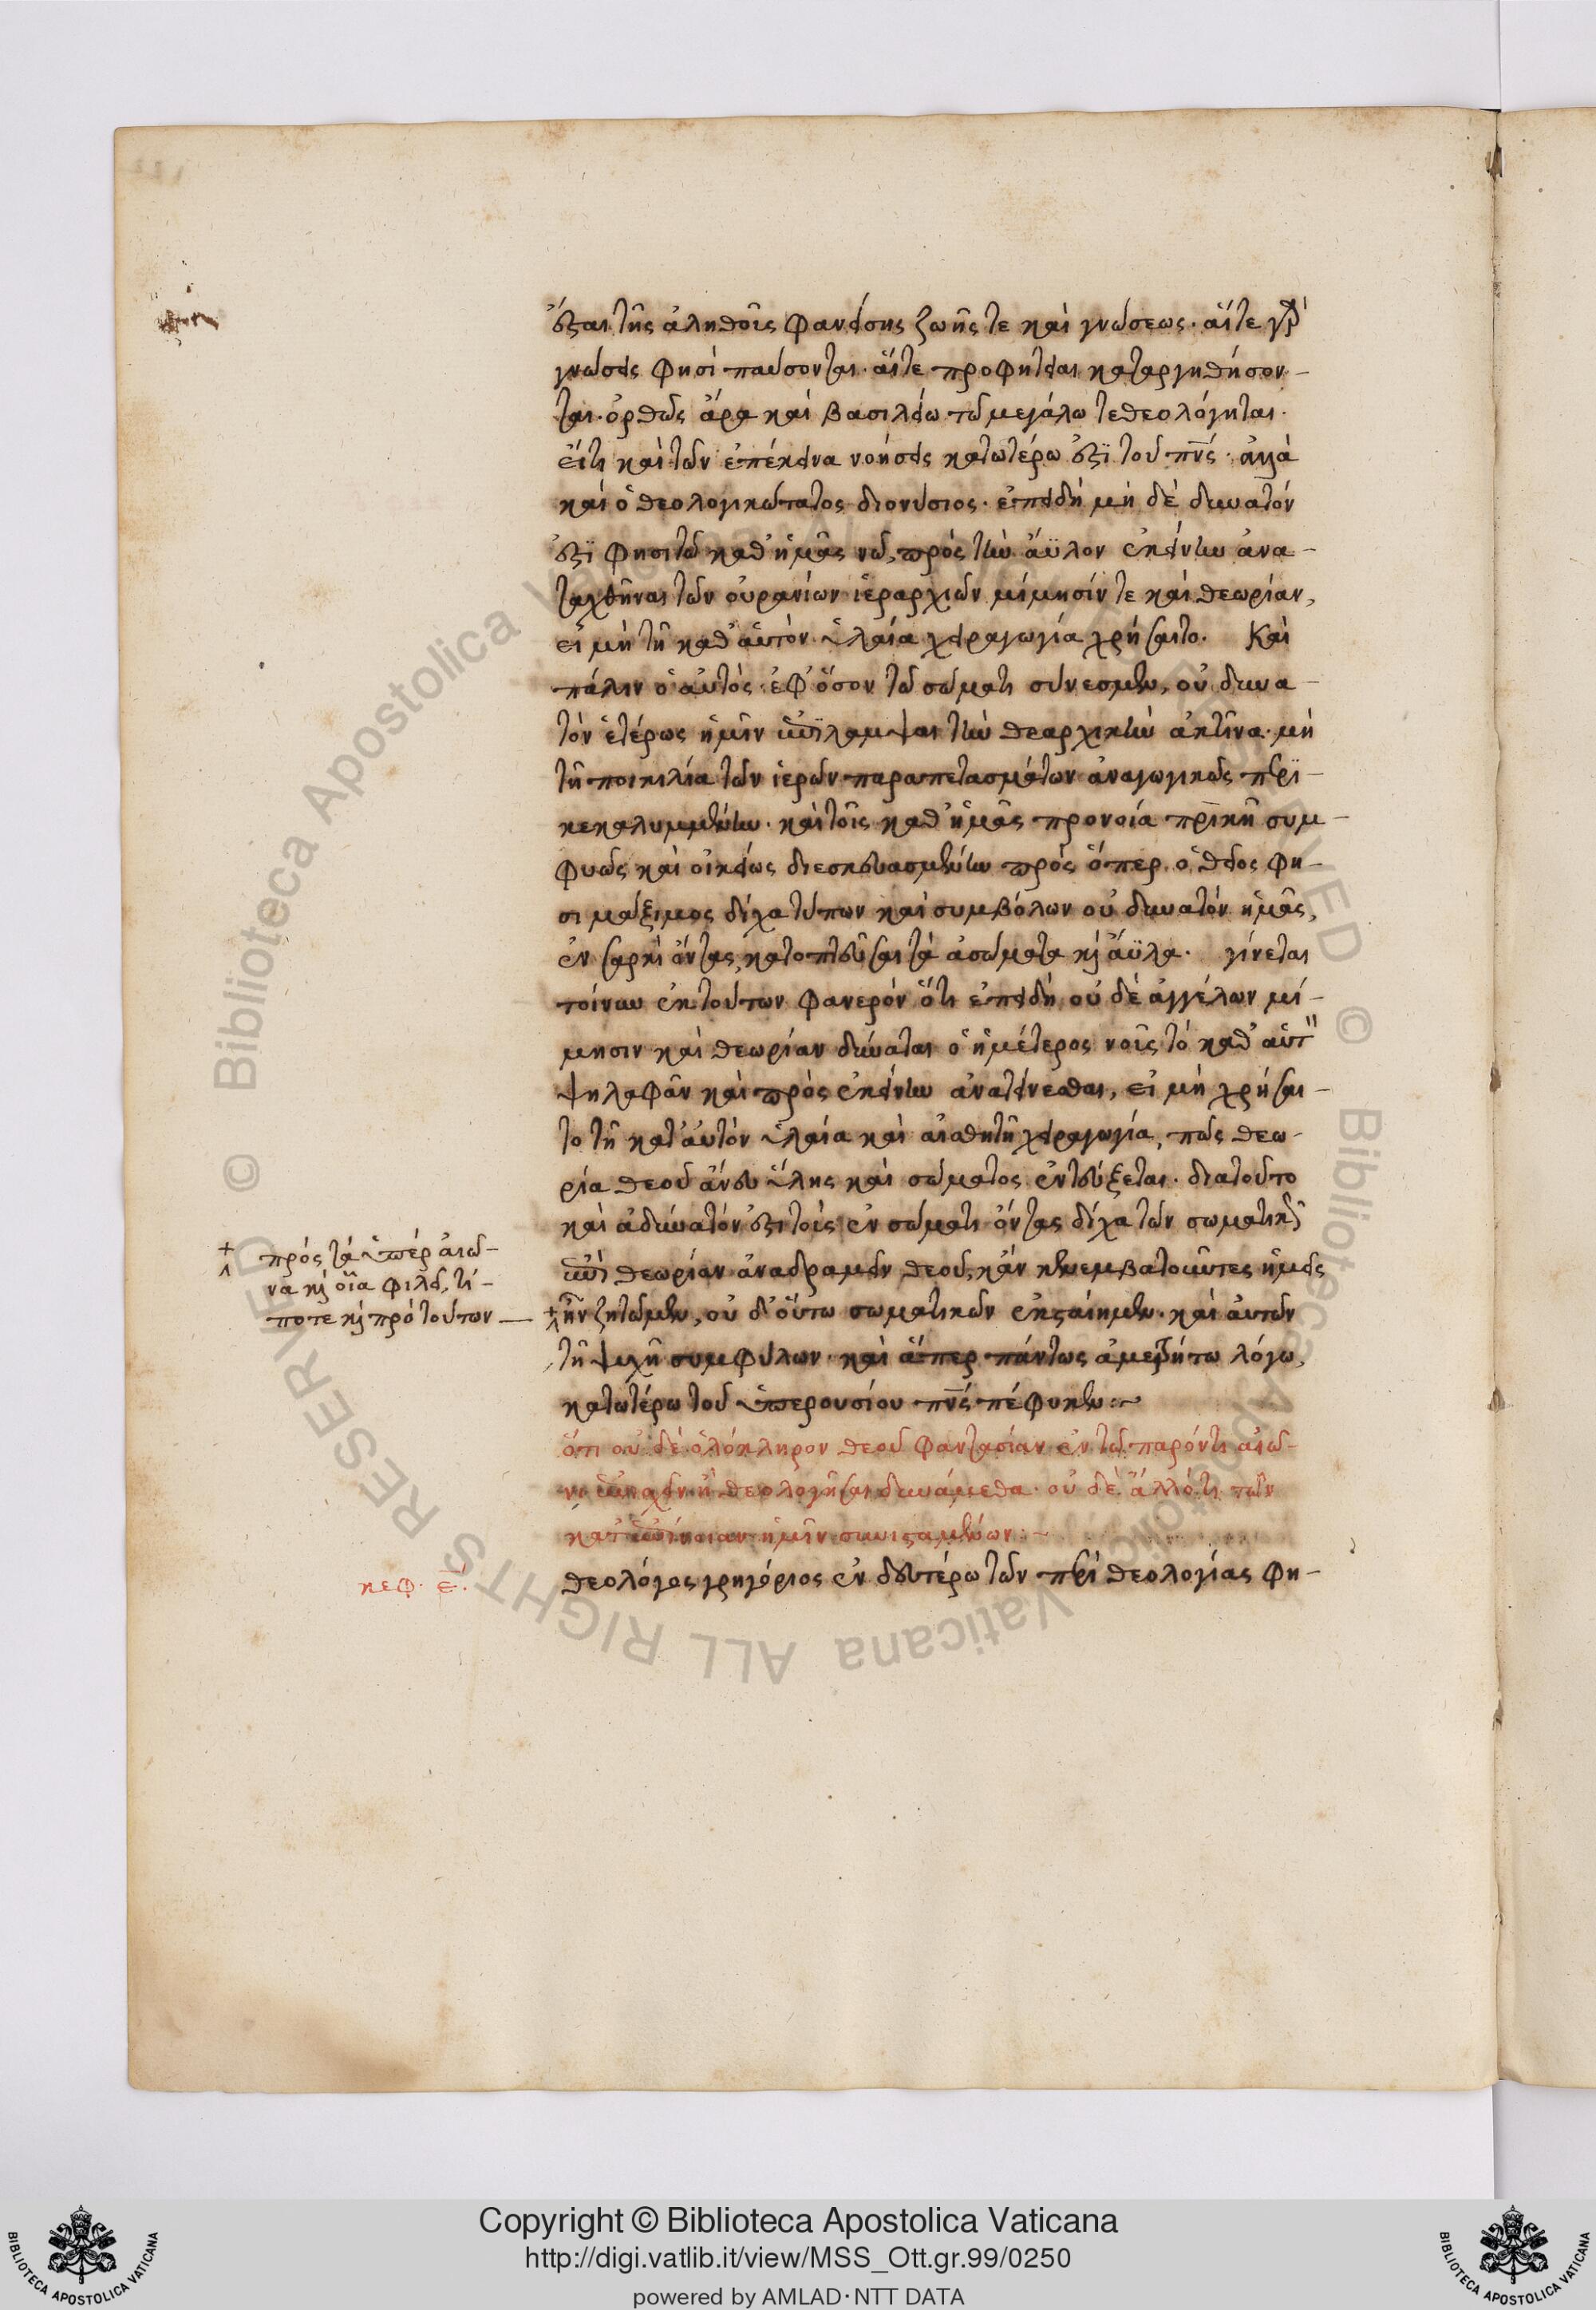 ἔσται τῆς ἀληθοῦς φανείσης ζωῆς τε καὶ γνώσεως· αἵ τε γὰρ
γνώσεις φησὶ παύσονται· αἵ τε προφητεῖαι καταργηθήσον-
ται· ὀρθῶς ἄρα καὶ βασιλείω τῶ μεγάλω τεθεολόγηται·
ἔτι καὶ τῶν ἐπέκεινα νοήσεις κατωτέρω ἐστὶ τοῦ πνς· ἀλλὰ
καὶ ὁ θεολογικώτατος διονύσιος· ἐπειδὴ μὴ δὲ δυνατόν
ἐστὶ φησι τῶ καθ' ἡμᾶς νῶ, πρὸς τὴν ἄϋλον ἐκείνην ἀνα-
ταχθῆναι τῶν οὐρανίων ἱεραρχιῶν μίμησίν τε καὶ θεωρίαν,
εἰ μὴ τῆ καθ' αὑτὸν ὑλαία χειραγωγία χρήσαιτο. Καὶ
πάλιν ὁ αὐτὸς· ἐφ' ὅσον τῶ σώματι σύνεσμεν, οὐ δυνα-
τὸν ἑτέρως ἡμῖν ἐπιλάμψαι τὴν θεαρχικὴν ἀκτῖνα· μὴ
τῆ ποικιλία τῶν ἱερῶν παραπετασμάτων ἀναγωγικῶς περι-
κεκαλυμμένην· καὶ τοῖς καθ' ἡμᾶς προνοία πρικῆ συμ-
φυῶς καὶ οἰκείως διεσκευασμένην πρὸς ὅπερ ὁ θεῖος φη-
σι μάξιμος δίχα τύπων καὶ συμβόλων οὐ δυνατὸν ἡμᾶς,
ἐν σαρκὶ ὄντας, κατοπτεῦσαι τὰ ἀσώματα κὶ ἄϋλα. γίνεται
τοίνυν ἐκ τούτων φανερὸν ὅτι ἐπειδὴ οὐ δὲ ἀγγέλων μί-
μησιν καὶ θεωρίαν δύναται ὁ ἡμέτερος νοῦς τὸ καθ' αὑτ
ψηλαφᾶν καὶ πρὸς ἐκείνην ἀνατείνεσθαι, εἰ μὴ χρήσαι-
το τῆ κατ' αὐτὸν ὑλαία καὶ αἰσθητῆ χειραγωγία, πῶς θεω-
ρία θεοῦ ἄνευ ὕλης καὶ σώματος ἐντεύξεται· διατοῦτο
καὶ ἀδύνατόν ἐστι τοὺς ἐν σώματι ὄντας δίχα τῶν σωματικῶν
ἐπὶ θεωρίαν ἀναδραμεῖν θεοῦ, κἂν κενεμβατοῦντες ἡμεῖς
ἣν ζητῶμεν, οὐ δ' οὕτω σωματικῶν ἐκσταίημεν· καὶ αὐτῶν
τῆ ψυχῆ συμφύλων· καὶ ἅπερ πάντως ἀμετρήτω λόγω,
κατωτέρω τοῦ ὑπερουσίου πνς πέφυκεν:~
πρὸς τὰ ὑπὲρ αἰῶ-
να κὶ οἷα φιλεῖ, τί-
ποτε κὶ πρὸ τούτων
ὅτι οὐ δὲ ὁλόκληρον θεοῦ φαντασίαν ἐν τῶ παρόντι αἰῶ-
νι ἔχειν ἢ θεολογῆσαι δυνάμεθα· οὐ δὲ ἄλλό τι τῶν
κατ' ἐπίνοιαν ἡμῖν συνισταμένων:~
κεφ. ε.
θεολόγος γρηγόριος ἐν δευτέρω τῶν περὶ θεολογίας φη-
Copyright © Biblioteca Apostolica Vaticana
http://digi.vatlib.it/view/MSS_Ott.gr.99/0250
powered by AMLAD·NTT DATA